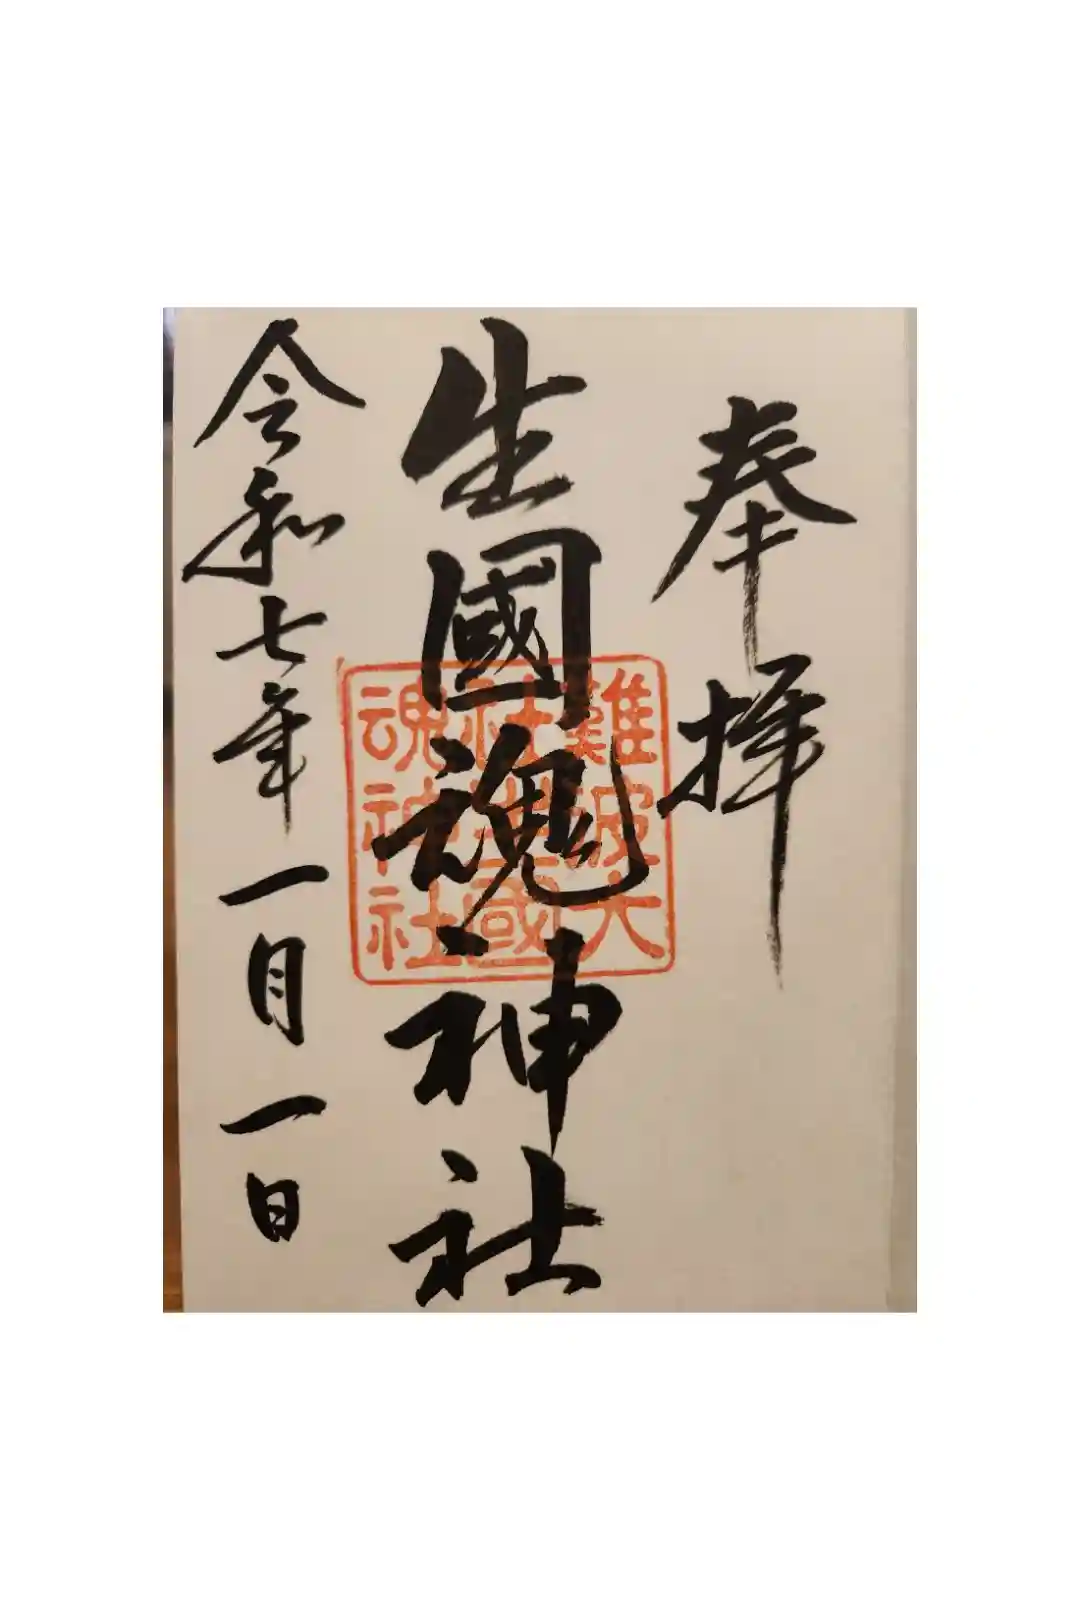 奉拝
生國魂神社
令和七年一月一日
難波大
社生國
魂神社